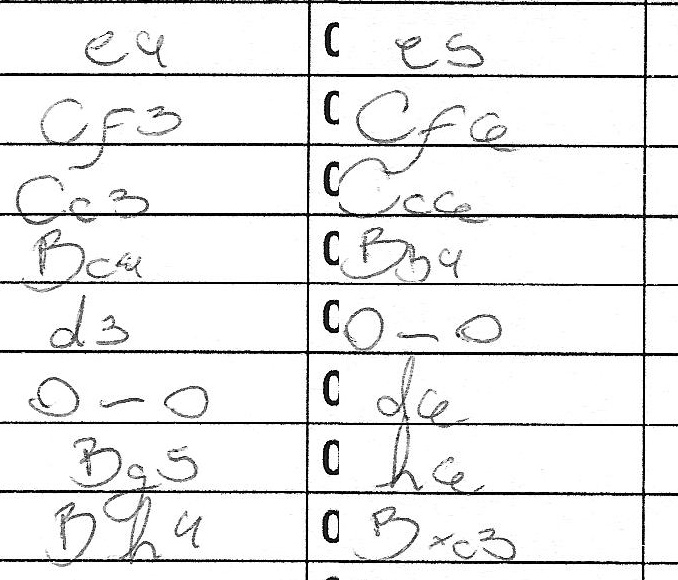 e4 e5
Cf3 Cf6
Cc3 Cc6
Bc4 Bb4
d3 O-O
O-O d6
Bg5 h6
Bh4 Bxc3